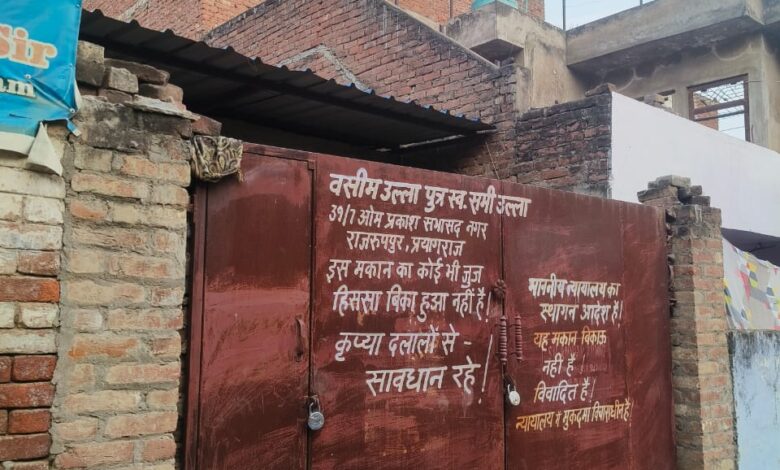 Sir
वसीम उल्ला पुत्र स्व. समी उल्ला
31/1 ओम प्रकाश सभासद नगर
राजरुपपुर, प्रयागराज
इस मकान का कोई भी जुज
हिससा बिका हुआ नहीं है।
कृप्या दलालों से -
सावधान रहे!
माननीय न्यायालय का
स्थगन आदेश है।
यह मकान बिकाऊ
नहीं है!
विवादित है!
न्यायालय में मुकदमा विचाराधीन है।